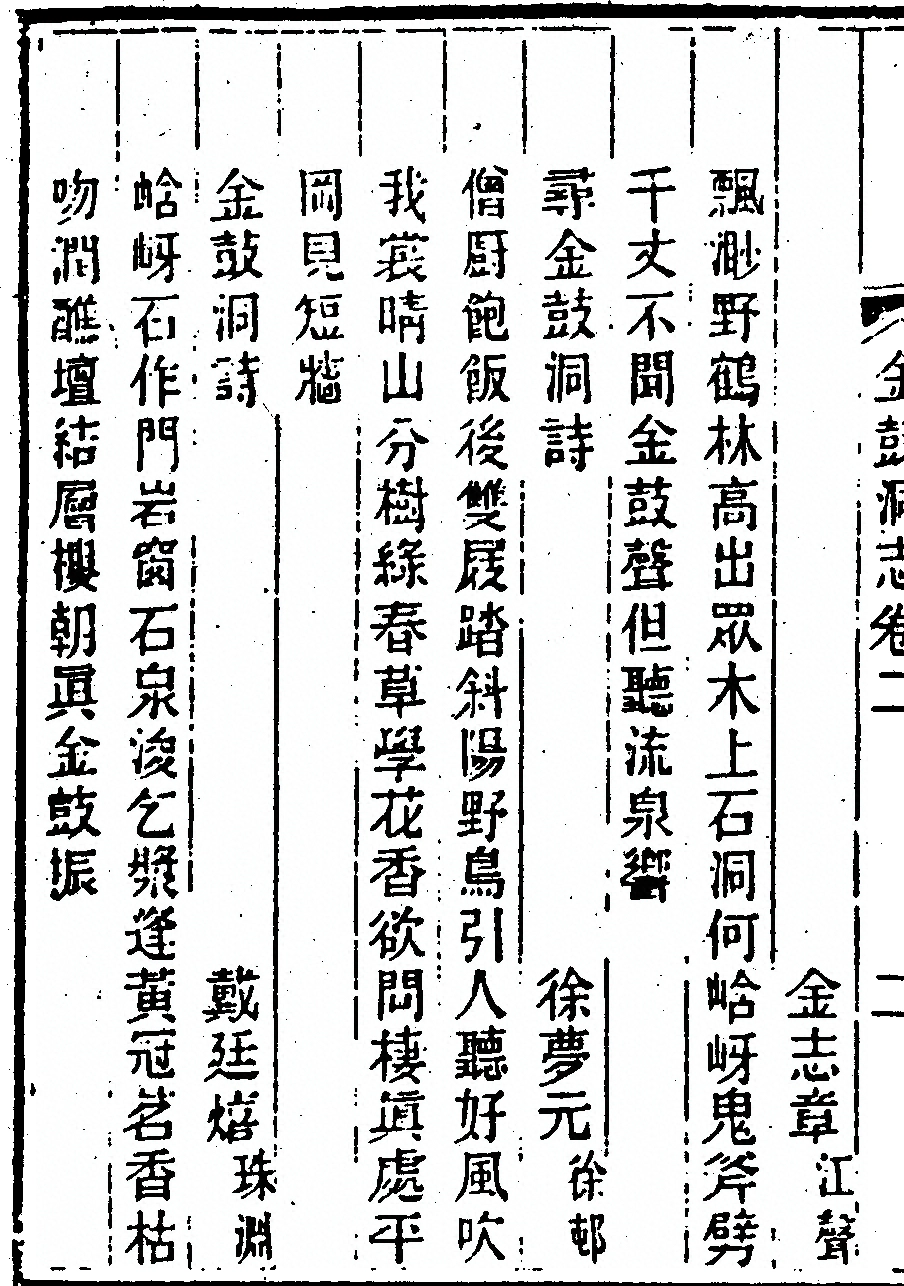 金鼓洞志卷二
二
金志章江聲
飄渺野鶴林高出眾木上石洞何峆岈鬼斧劈
千丈不聞金鼓聲但聽流泉響
尋金鼓洞詩
徐夢元徐邨
僧厨飽飯後雙屐踏斜陽野鳥引人聽好風吹
我裳晴山分樹綠春草學花香欲問棲眞處平
岡見短牆
金鼓洞詩
戴廷熺珠淵
峆岈石作門岩窗石泉浚乞漿逢黃冠茗香枯
吻潤醮壇結層樓朝眞金鼓振